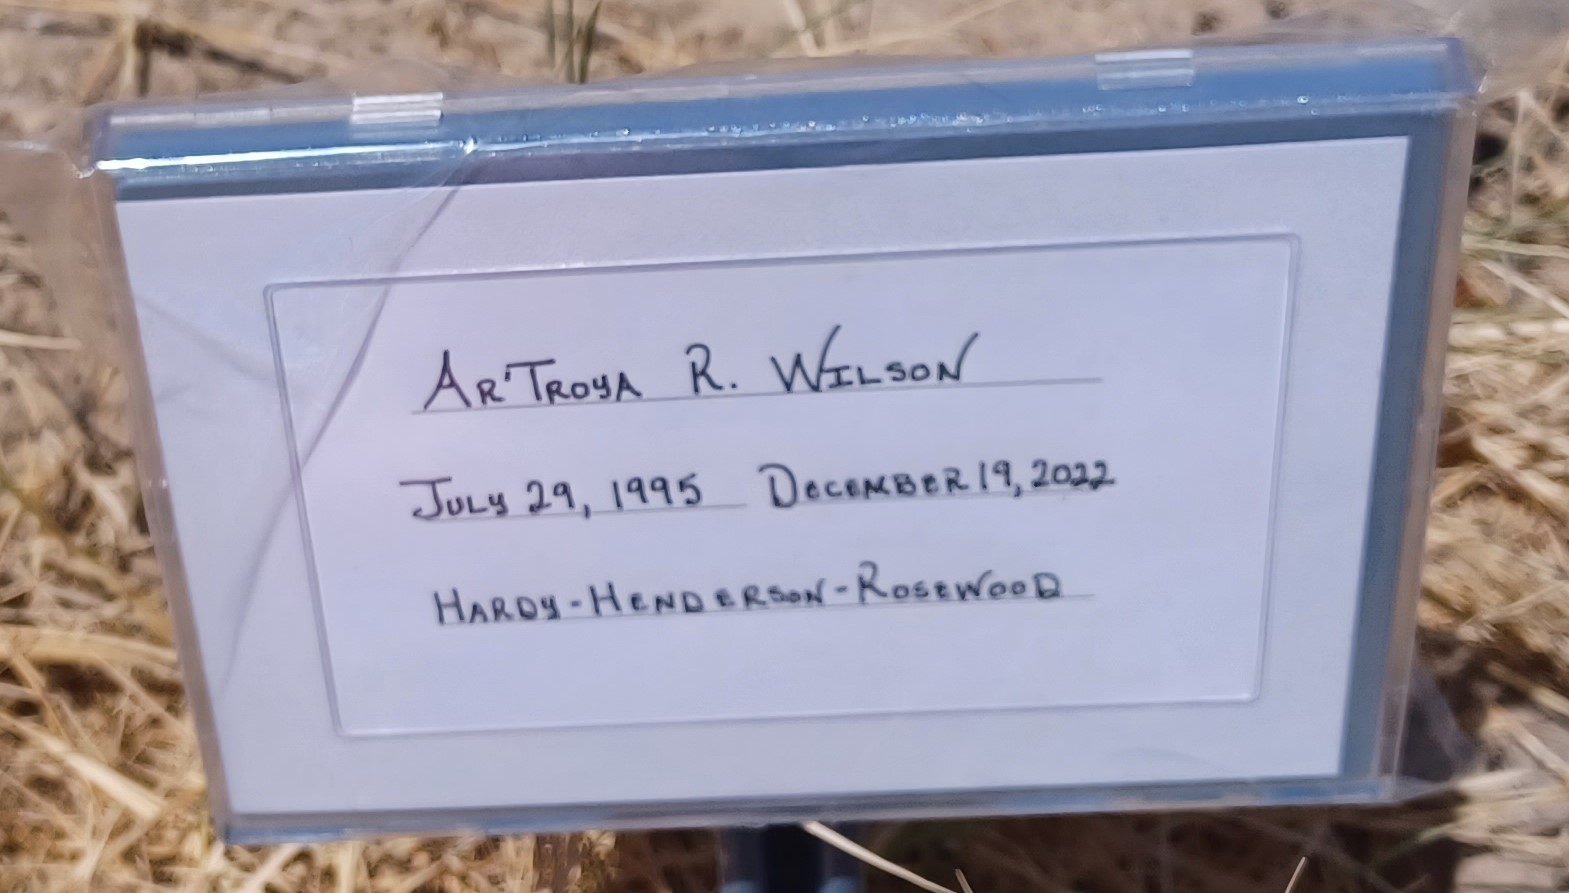 Ar'Troya R. Wilson
July 29, 1995 December 19, 2022
Hardy-Henderson-Rosewood